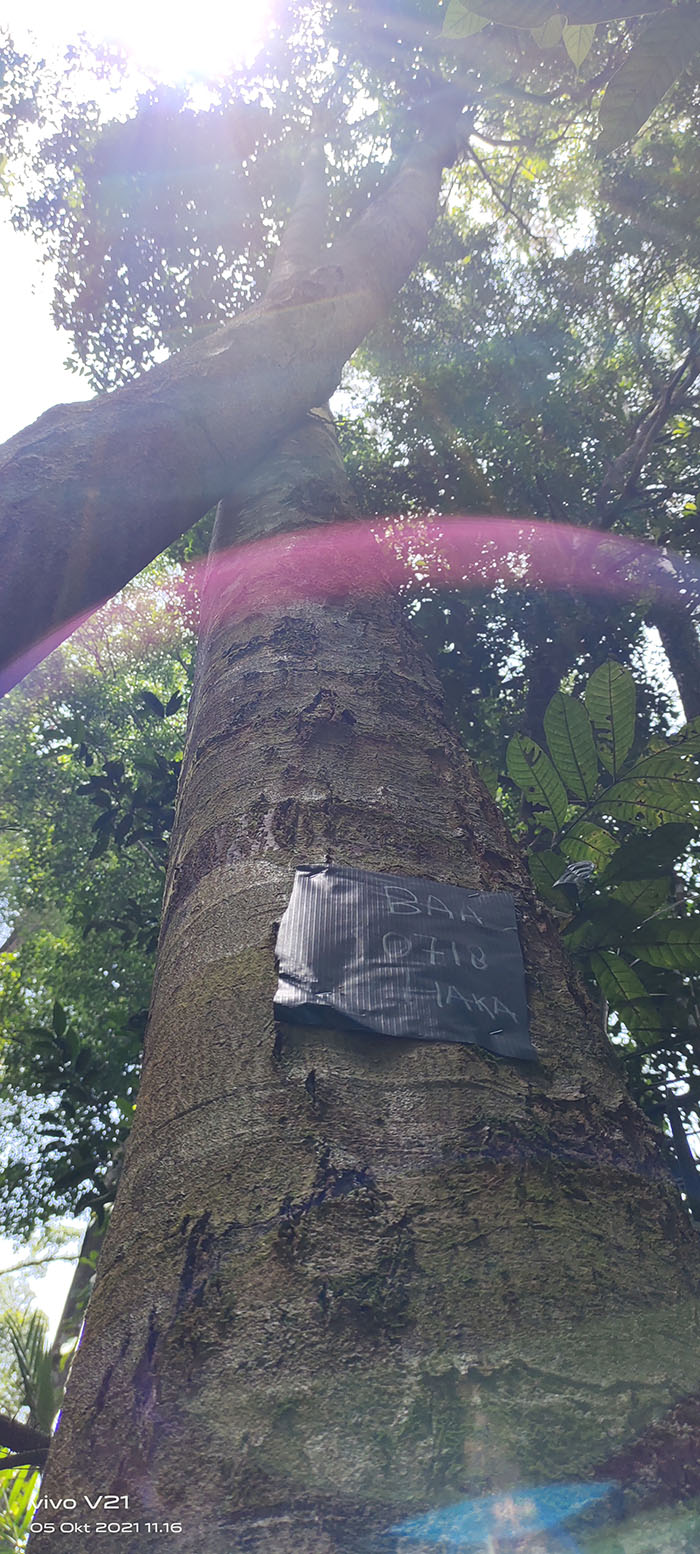 BAA
10718
HAKA
vivo V21
05 Okt 2021 11.16